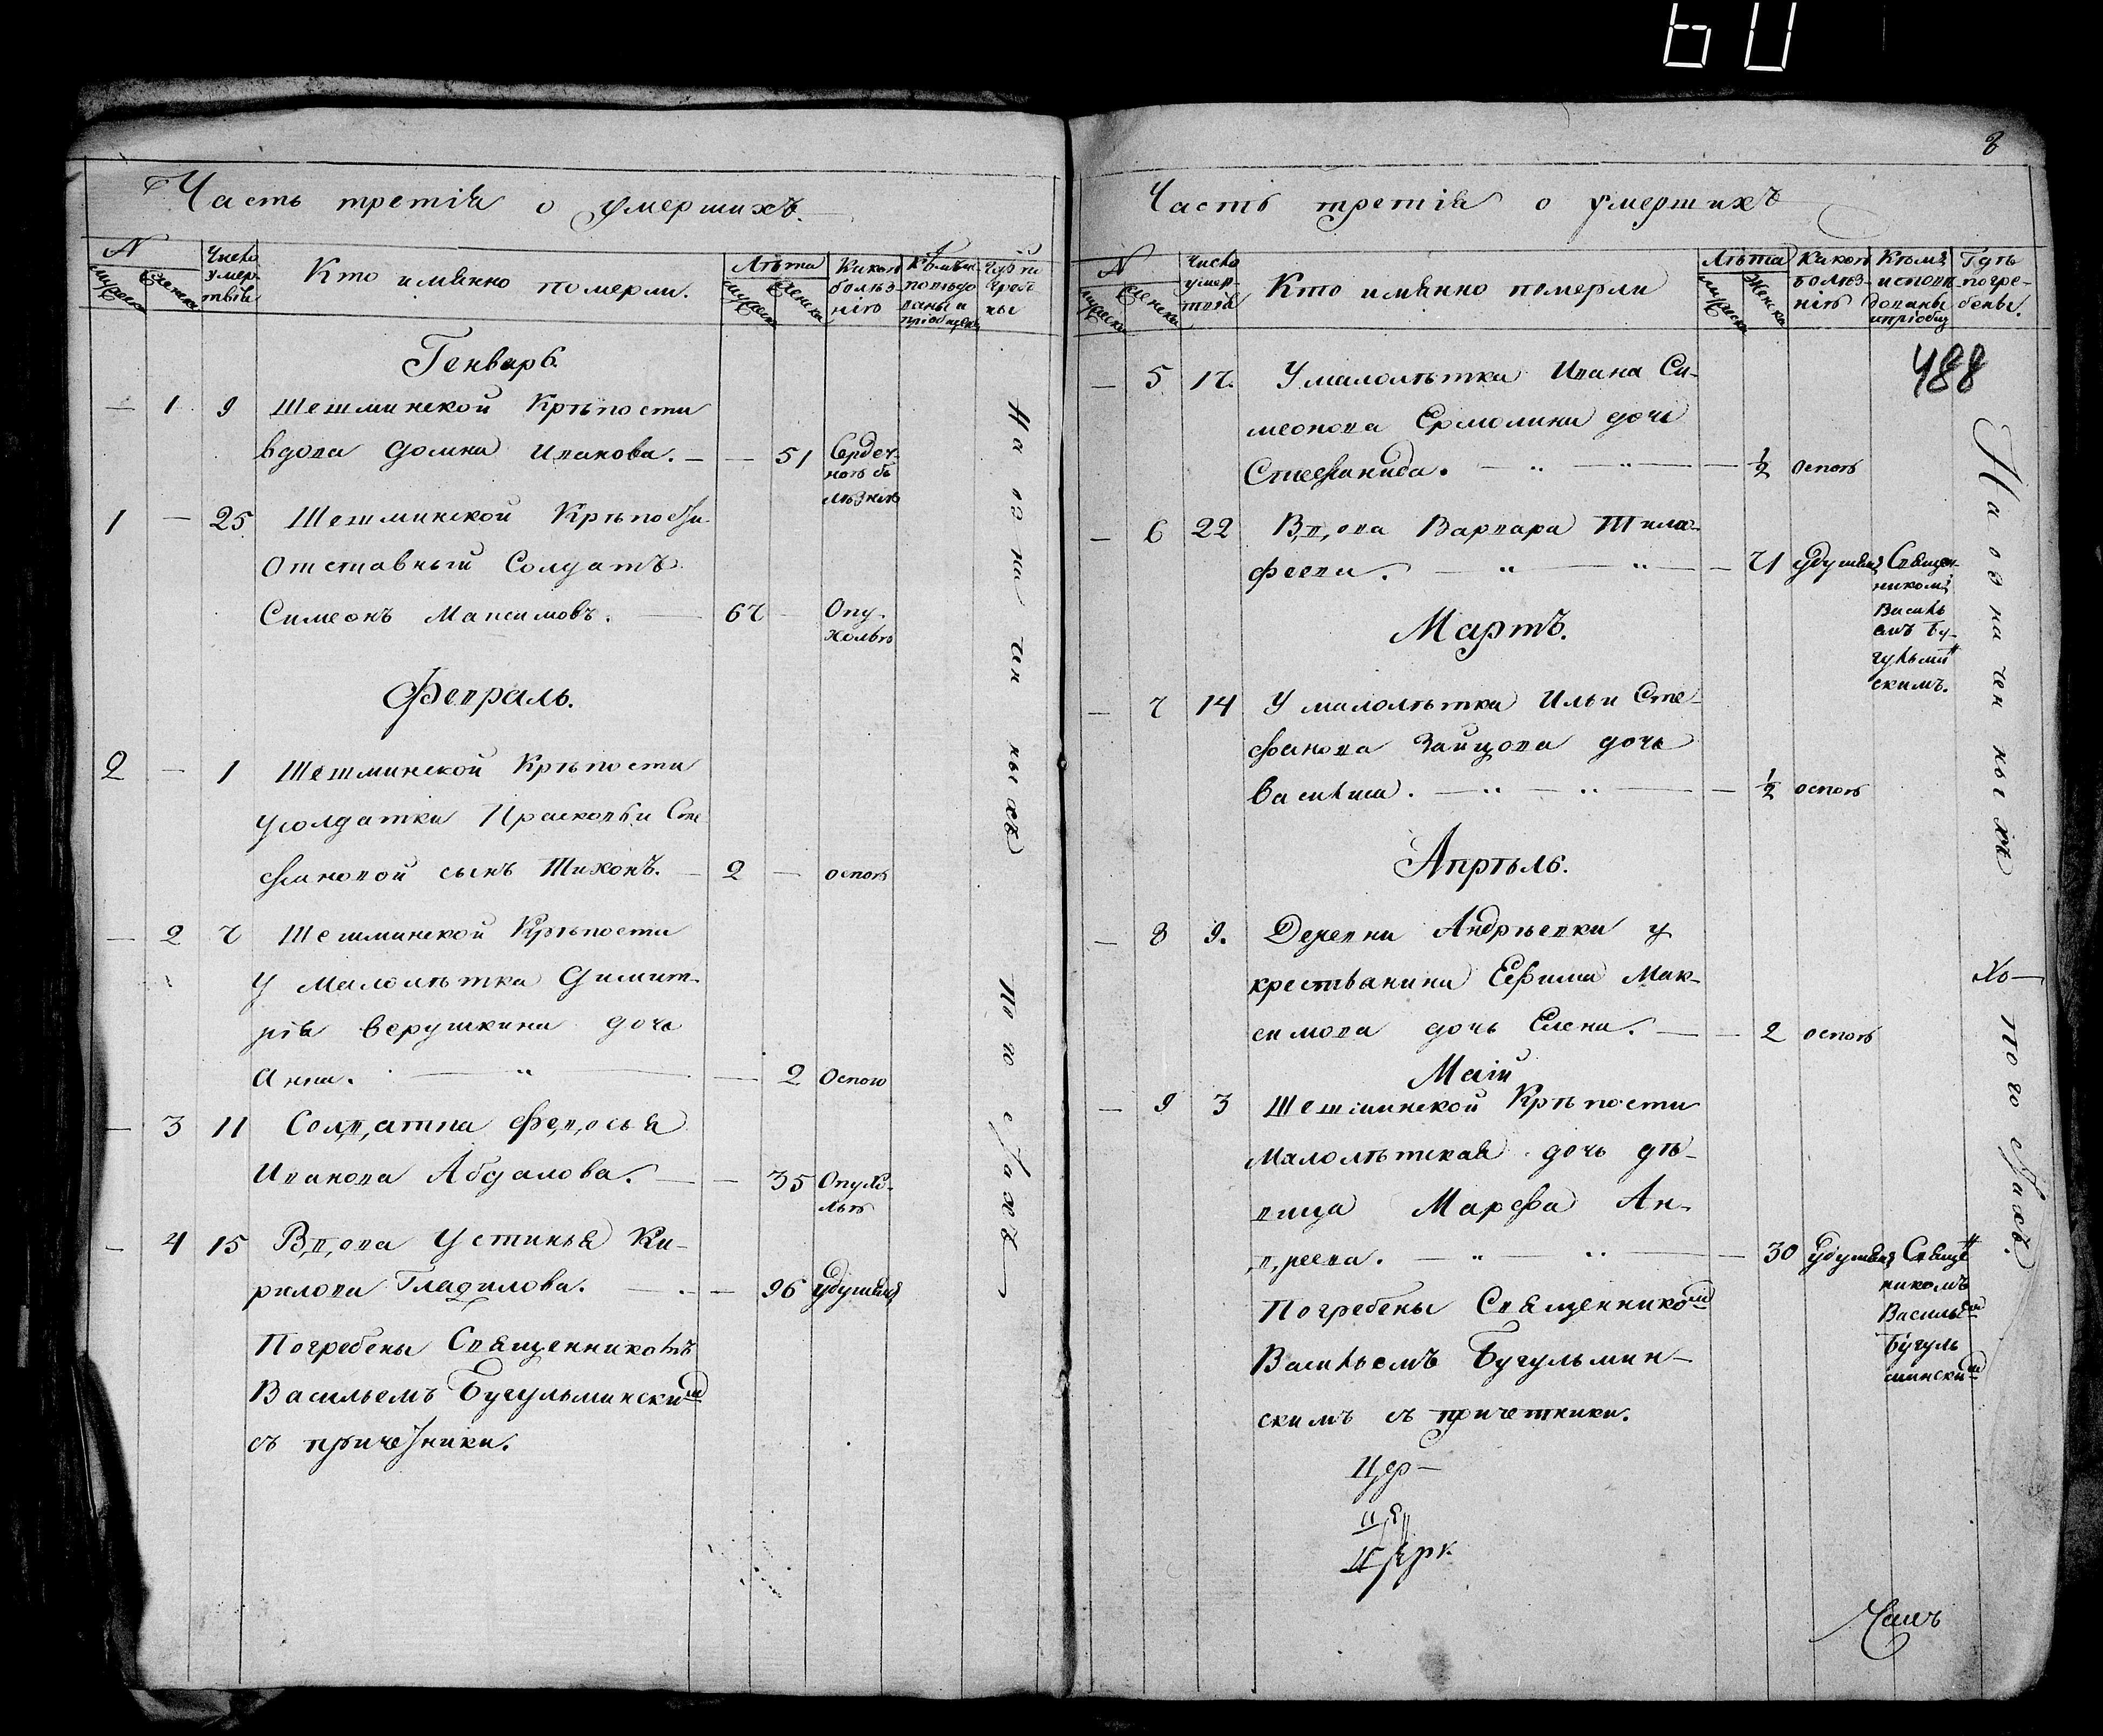 60
Часть третія о умершихъ.
N
мужеска
Женска
Число
умер-
твія
Кто имянно померли.
Лѣта
мужеска
Женска
Какою
болѣз-
нію
погре-
бе-
ны
Генварь.
— 1 9 Шешминской Крѣпости
вдова Домна Иванова. — — 51 Сердеч-
ною бо
лѣзнію
1 — 25 Шешминской Крѣпости
Отставный Солдатъ
Симеонъ Максимовъ. — 67 Опу-
холью
Февраль.
2 — 1 Шешминской Крѣпости
у солдатки Прасковьи Сте
фановой сынъ Тихонъ. — 2 — оспою
— 2 7 Шешминской Крѣпости
У Малолѣтка Димит-
рія Верушкина дочь
Анна. — — 2 Оспою
— 3 11 Солдатка Федосья
Иванова Абдалова. — — 35 Опухо-
лью
— 4 15 Вдова Устинья Ки-
рилова Гладилова. — — 96 удушьемъ
Погребены Священникомъ
Васильемъ Бугульминскимъ
съ причетники.
На означенныхъ
того стахъ
8
Часть третія о умершихъ
N
мужеска
Женска
Число
умер-
твія
Кто имянно померли
Лѣта
мужеска
Женска
Какою
болѣз-
нію
Кѣмъ
исповѣ
дованы
и пріобщ
Гдѣ
погре-
бены.
488
— 5 17. У малолѣтка Ивана Си-
меонова Ермолина дочь
Стефанида. — — 1/2 оспою
— 6 22 Вдова Варвара Тимо-
феева. — — 71 удушьемъ Священ-
никомъ
Василь
емъ Бу-
гульмин
скимъ.
Мартъ.
— 7 14 У малолѣтка Ильи Сте-
фанова Зайцова дочь
Василиса. — — 1/2 оспою
Апрѣль.
— 8 9. Деревни Андрѣевки у
крестьянина Ефима Мак-
симова дочь Елена. — — 2 оспою
Маій
— 9 3 Шешминской Крѣпости
Малолѣтская дочь дѣ-
вица Марфа Ан-
дреева. — — 30 удушьемъ Священ
никомъ
Васильемъ
Бугуль
минскимъ
Погребены Священникомъ
Васильемъ Бугульмин-
скимъ съ причетники.
Цер-
Церк
На означенныхъ
того стахъ.